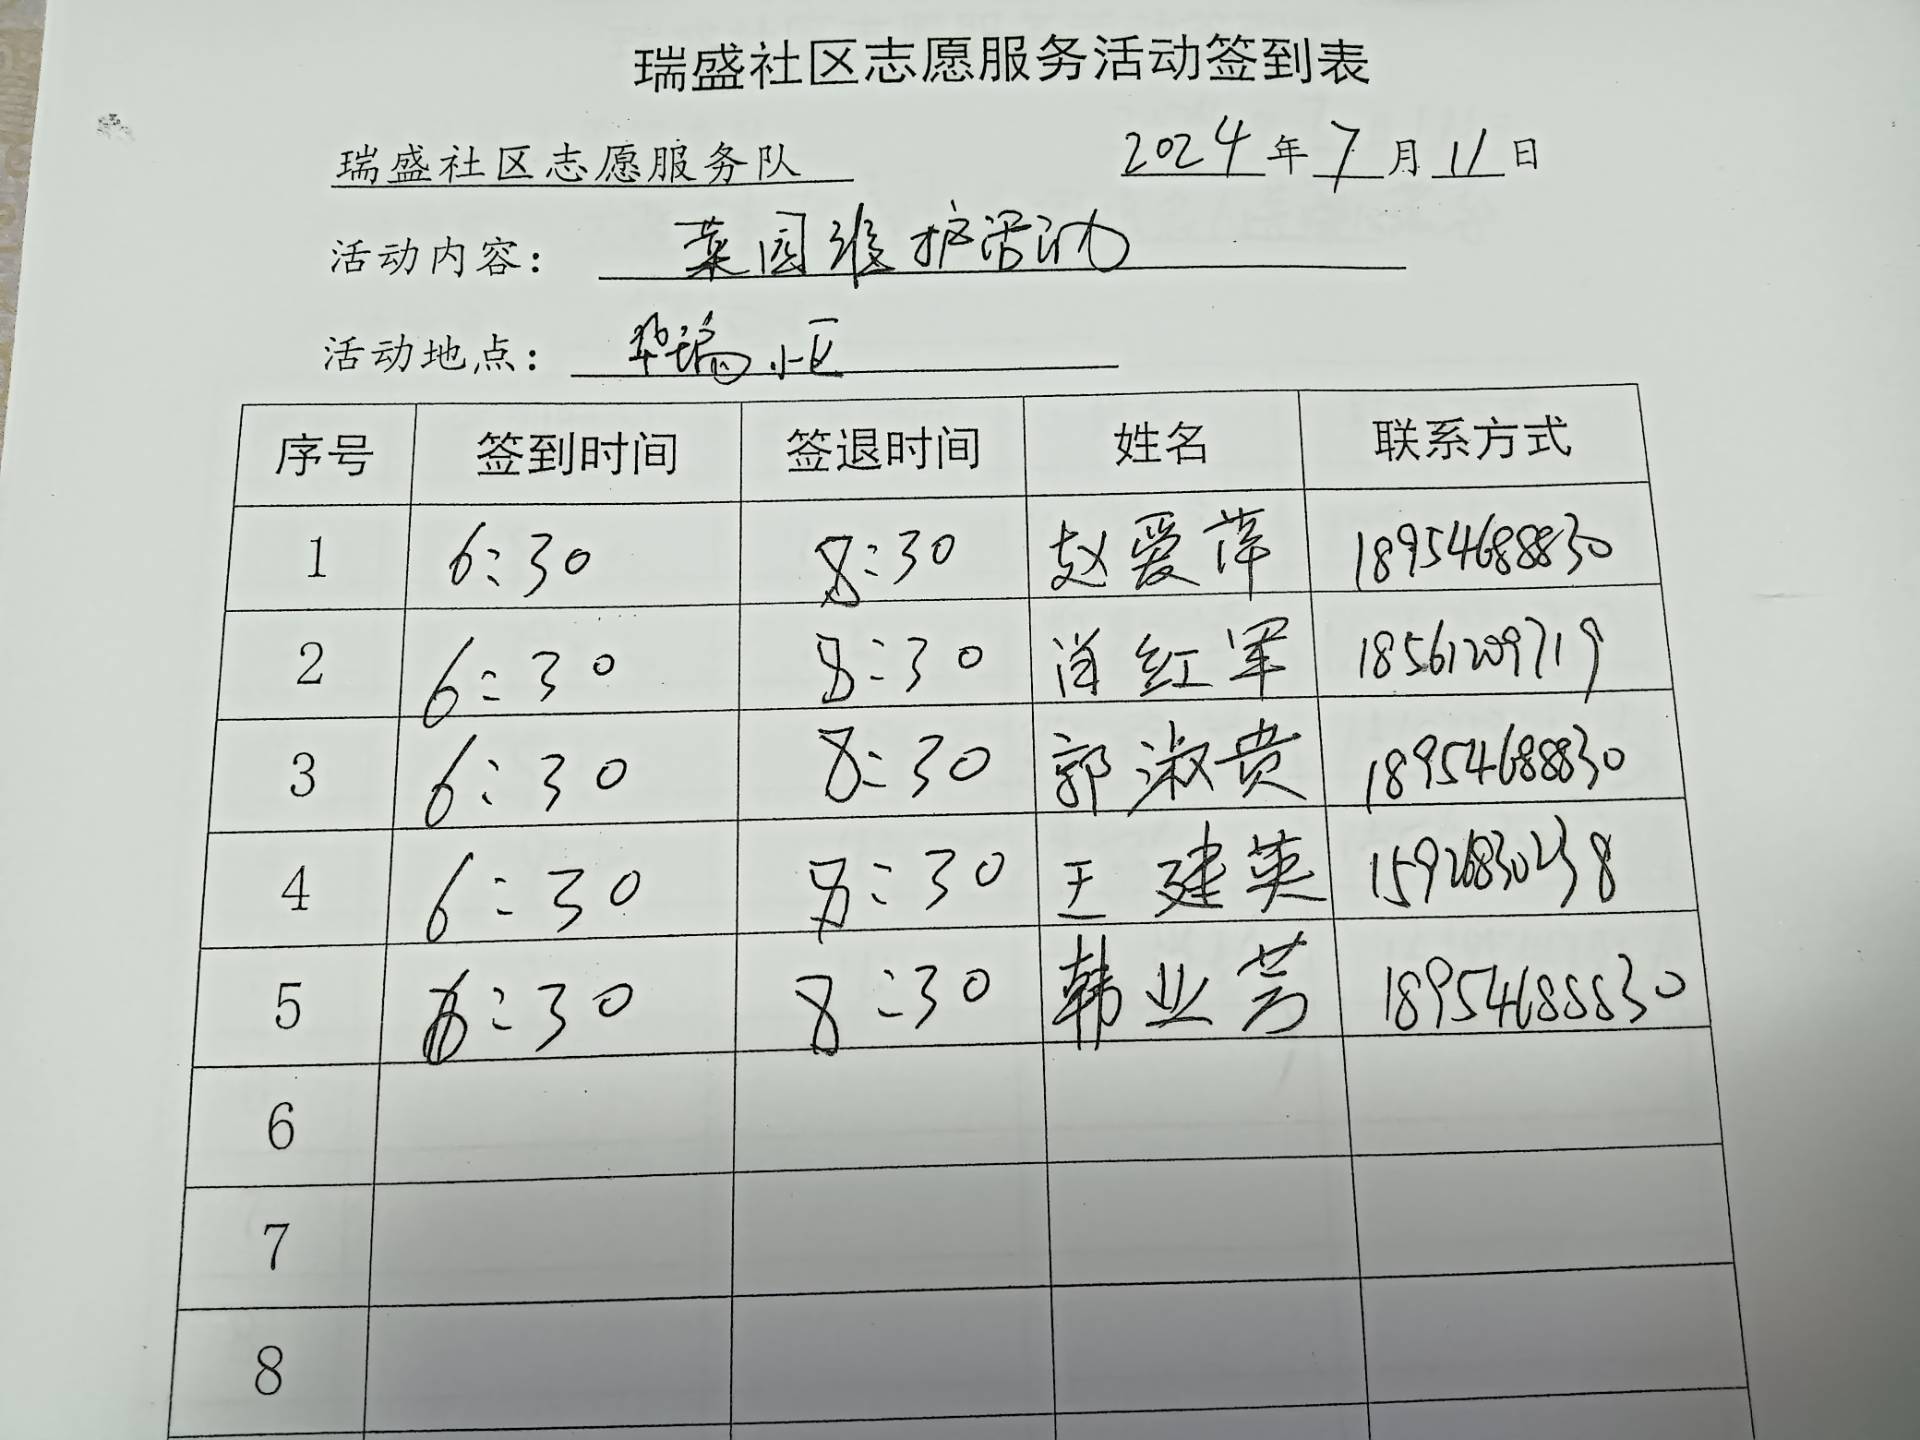 瑞盛社区志愿服务活动签到表
瑞盛社区志愿服务队 2024年7月11日
活动内容： 菜园维护活动
活动地点： 华瑞小区
序号 签到时间 签退时间 姓名 联系方式
1 6:30 8:30 赵爱萍 18954688830
2 6:30 8:30 肖红军 18561209719
3 6:30 8:30 郭淑贵 18954688830
4 6:30 8:30 王建英
5 6:30 8:30 韩业芳 18954688830
6
7
8